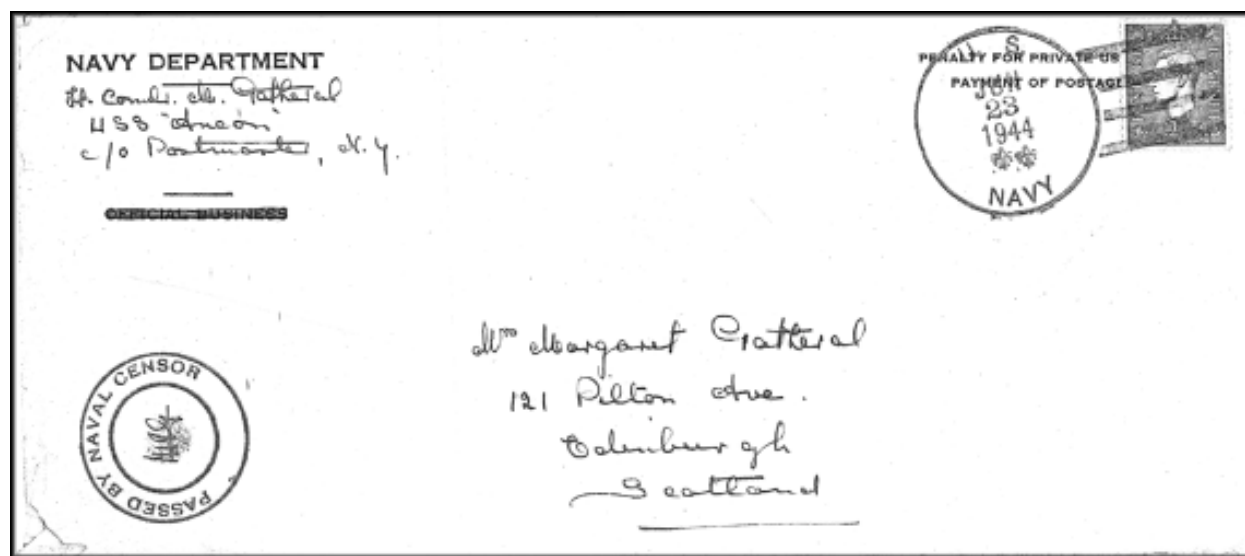 NAVY DEPARTMENT
Lt. Comdr. M. Gatheral
USS "Ancon"
c/o Postmaster, N.Y.
OFFICIAL BUSINESS
PENALTY FOR PRIVATE US
PAYMENT OF POSTAGE
U S
JUN
23
1944
NAVY
Mrs Margaret Gatheral
121 Pilton Ave.
Edinburgh
Scotland
PASSED BY NAVAL CENSOR